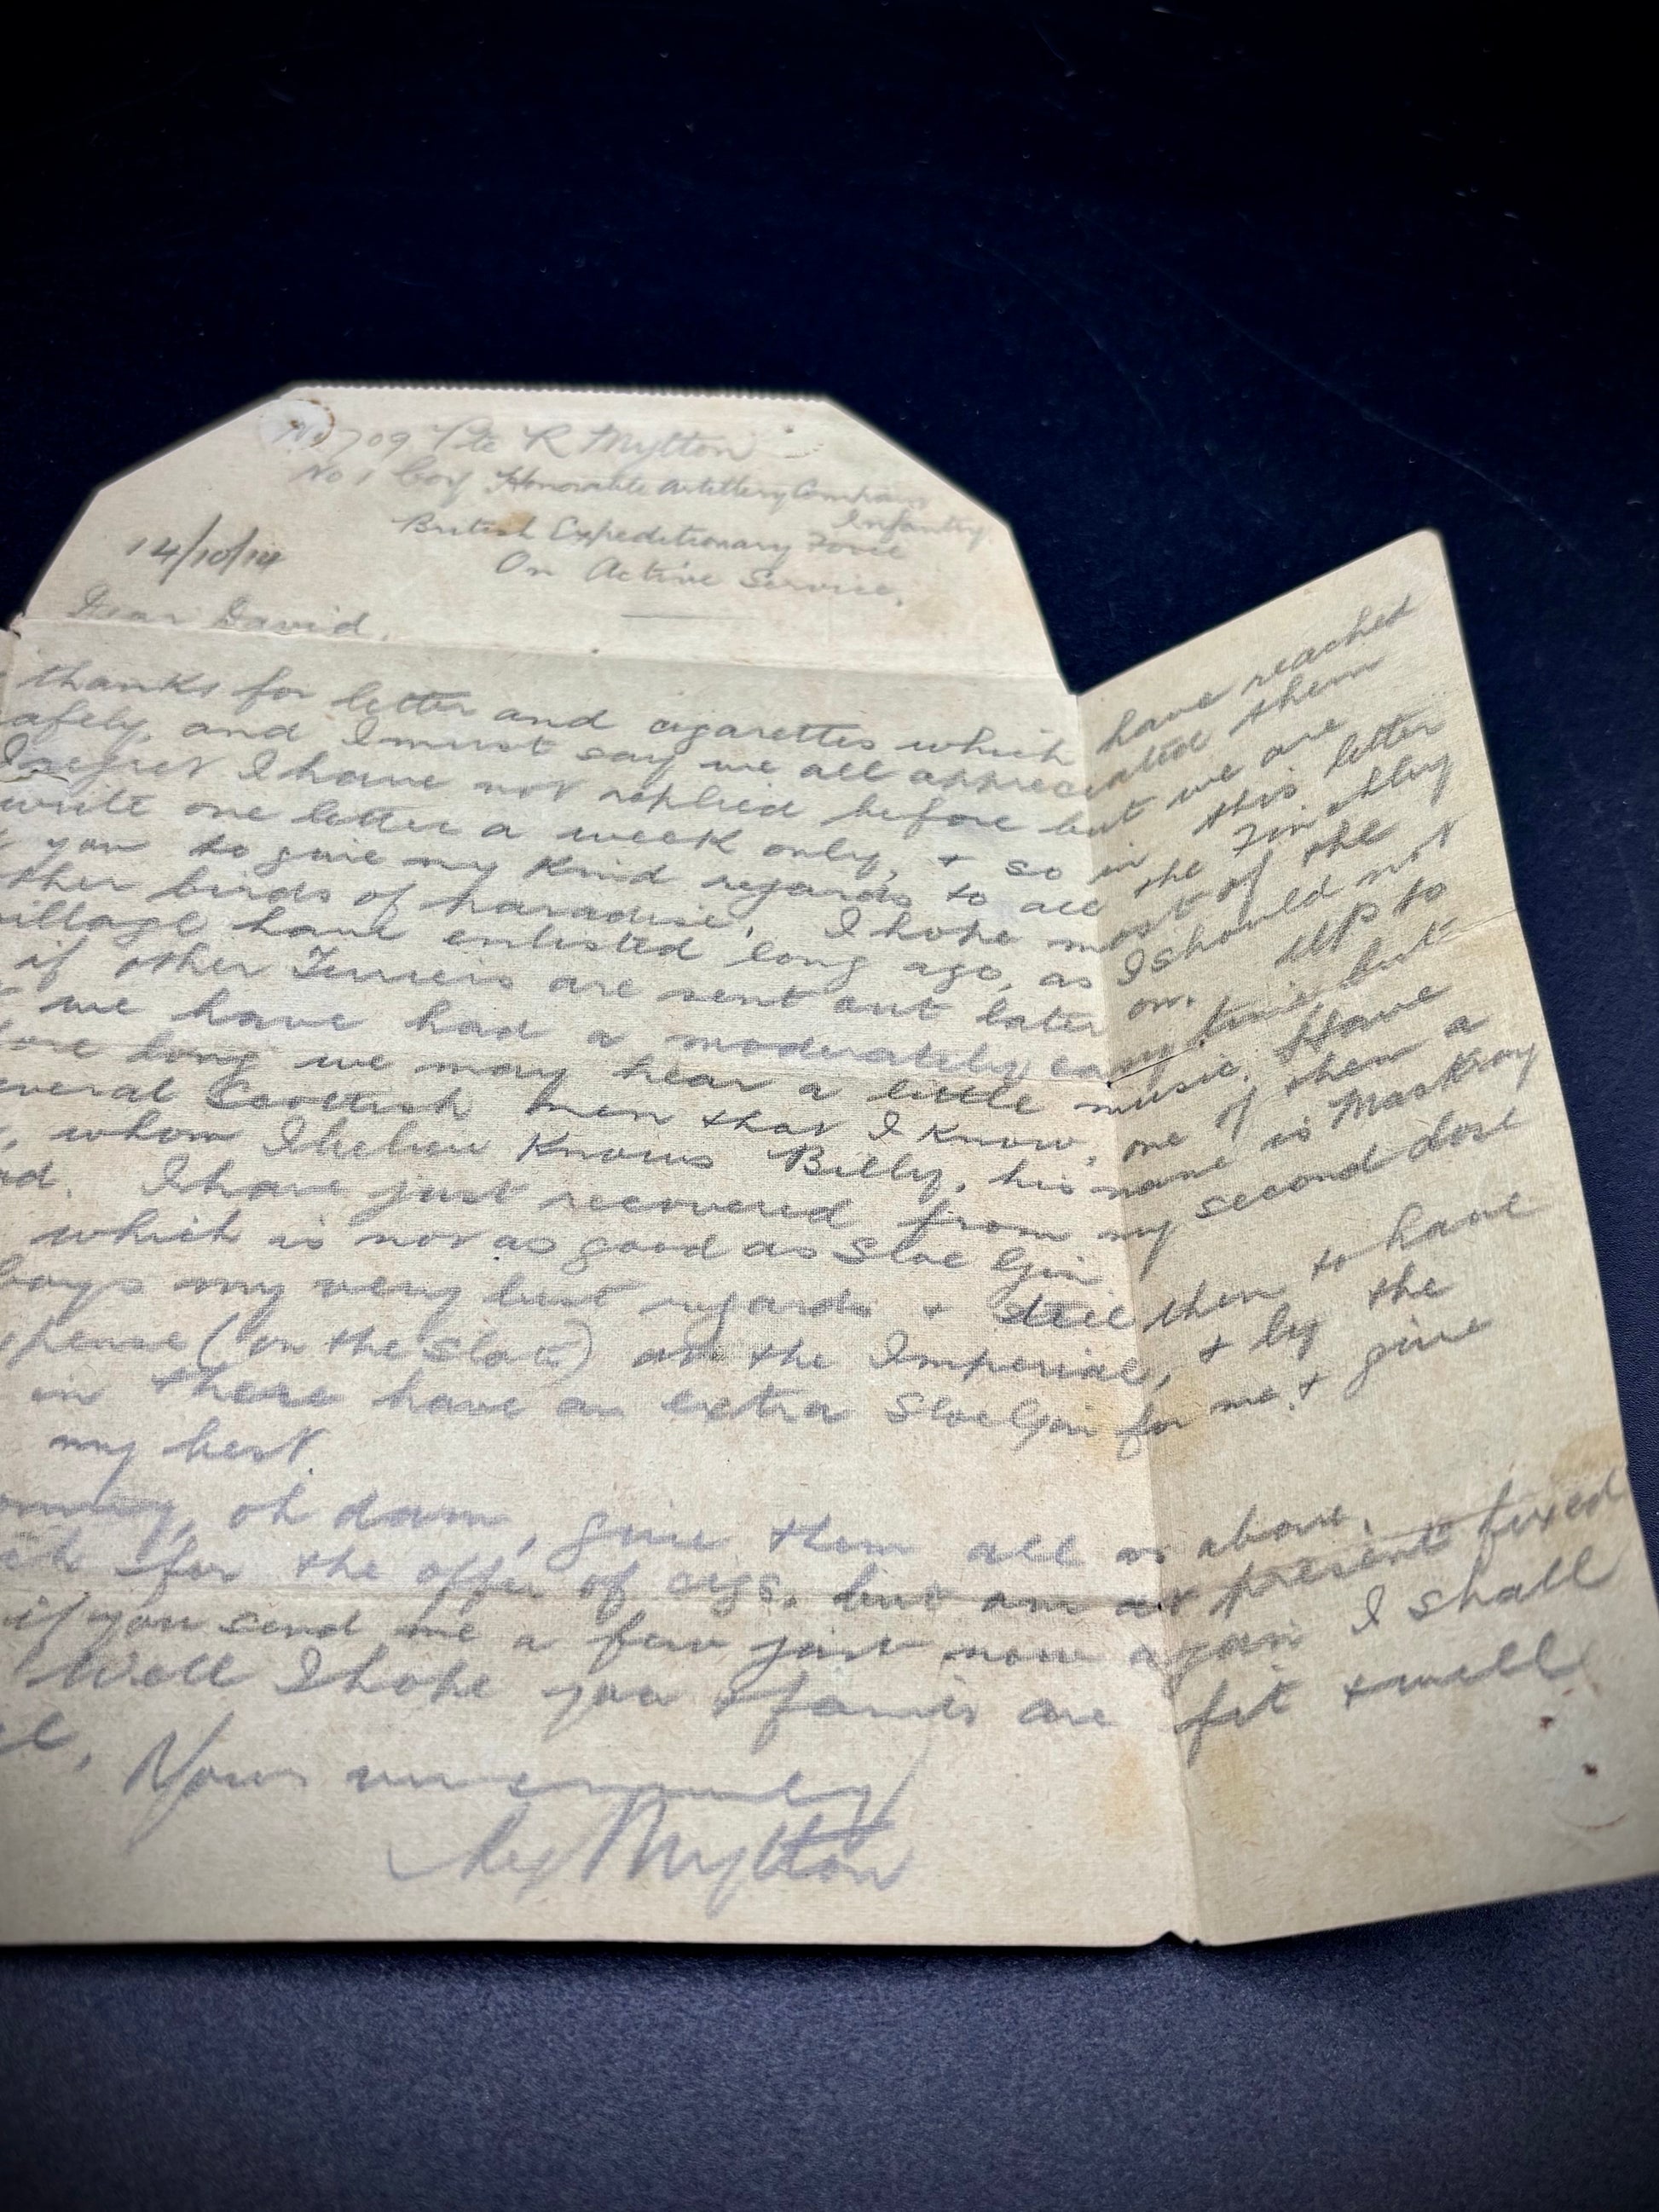 No 709 Pte R Mytton
No 1 Coy Honorable Artillery Company
Infantry
British Expeditionary Force
On Active Service.
14/10/14
Dear David,
thanks for letter and cigarettes which have reached
afely, and I must say we all appreciated them
I regret I have not replied before but we are
write one letter a week only, + so in this letter
you to give my kind regards to all the Finchley
ther birds of paradise. I hope most of the
illage have enlisted long ago, as I should not
if other Terriers are sent out later on. Up to
we have had a moderately easy time but
ore long we may hear a little music. Have
everal Scottish men that I know, one of them a
, whom I believe knows Billy, his name is Maskray
d. I have just recovered from my second dose
which is not as good as Sloe Gin
boys my very best regards + tell them to have
pense (on the slate) at the Imperial, + by the
in there have an extra Sloe Gin for me, + give
my best.
oh damn, give them all as above.
for the offer of cigs. but am at present fixed
if you send me a few just now again I shall
Well I hope you + family are fit + well
Yours very sincerely
Mytton